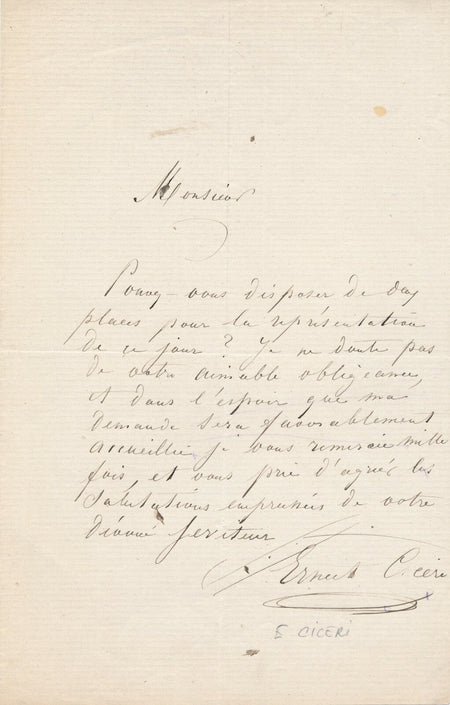 Monsieur
Pouvez-vous disposer de deux
places pour la représentation
de ce jour ? Je ne doute pas
de votre aimable obligeance,
et dans l'espoir que ma
demande sera favorablement
accueillie je vous remercie mille
fois, et vous prie d'agréer les
salutations empressées de votre
dévoué serviteur
Ernest Ciceri
E CICERI